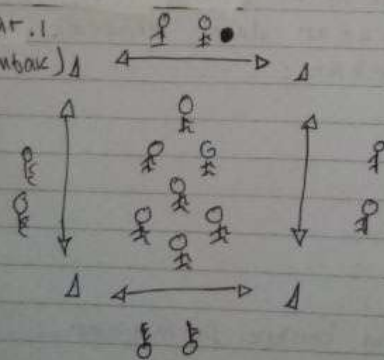 ar.1.
mbak)